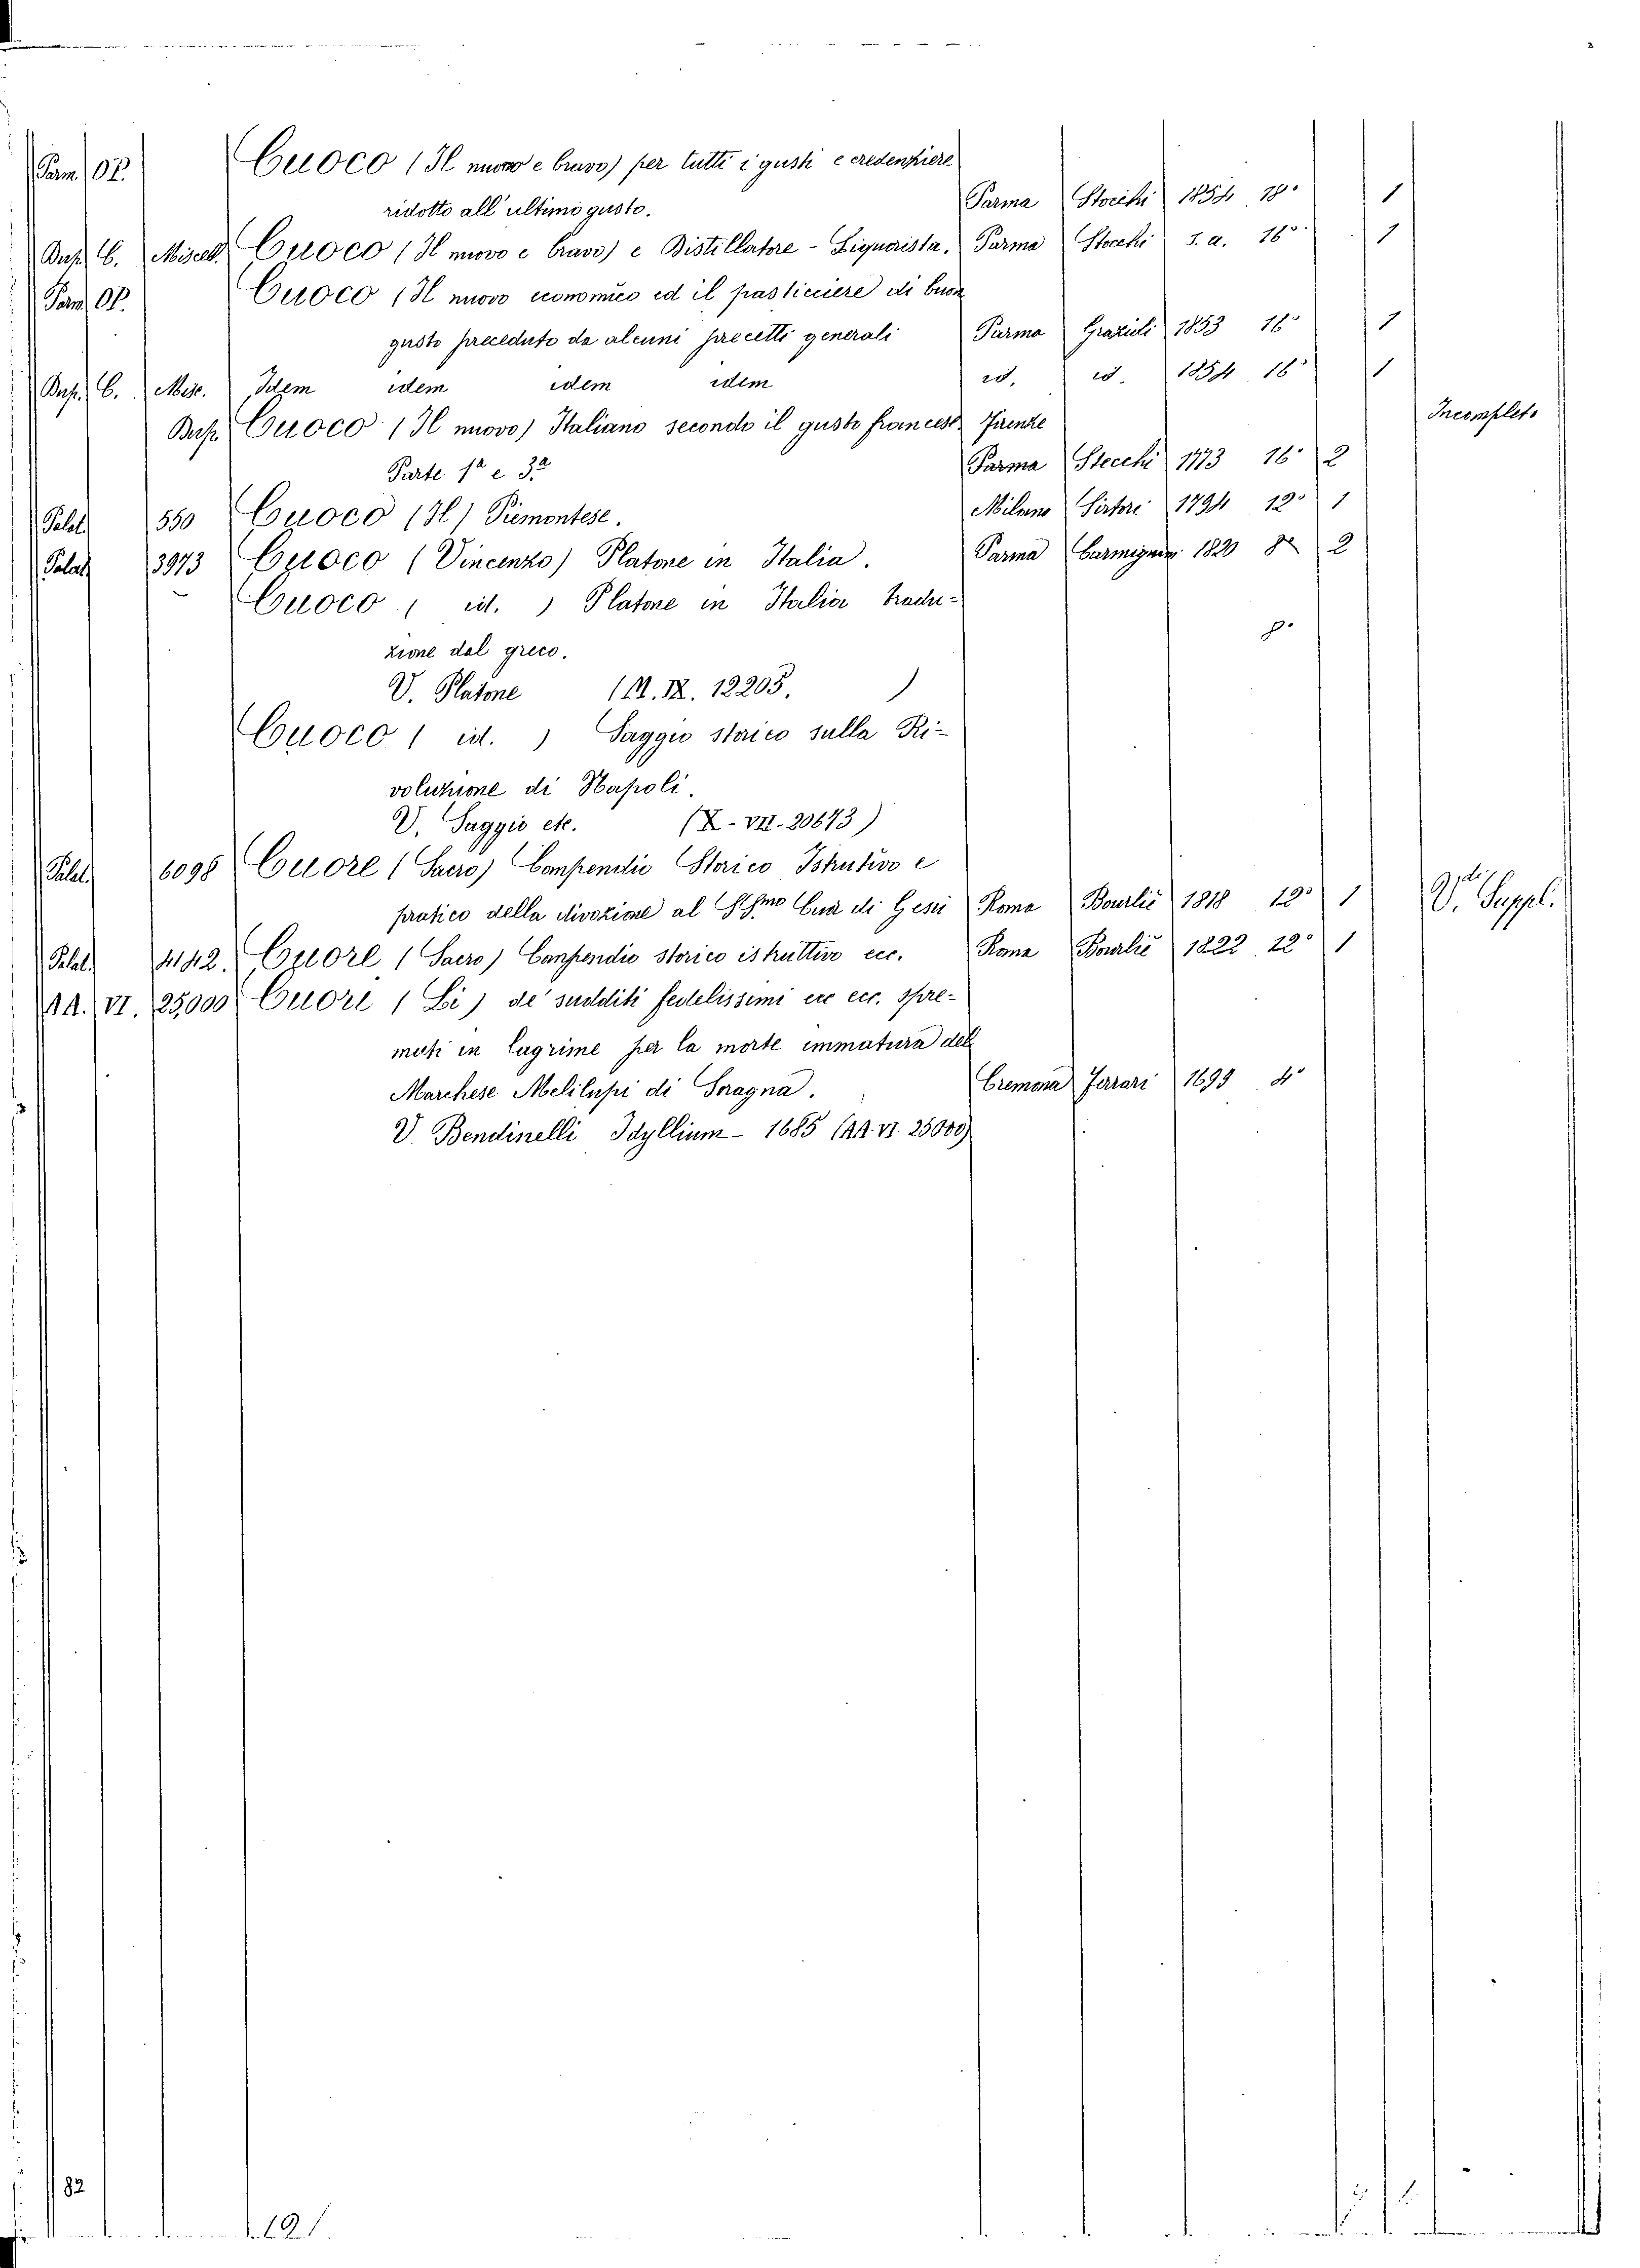 Parm. OP. Cuoco (Il nuovo e bravo) per tutti i gusti e credenziere
ridotto all'ultimo gusto. Parma Stocchi 1854 18° 1
Dup. C. Miscell. Cuoco (Il nuovo e bravo) e Distillatore - Liquorista. Parma Stocchi s. a. 16° 1
Parm. OP. Cuoco (Il nuovo economico ed il pasticciere di buon
gusto preceduto da alcuni precetti generali Parma Grazioli 1853 16° 1
Dup. C. Misc. Idem idem idem idem id. id. 1854 16° 1
Dup. Cuoco (Il nuovo) Italiano secondo il gusto francese Firenze Incompleto
Parte 1ª e 3ª Parma Stecchi 1773 16° 2
Palat. 550 Cuoco (Il) Piemontese. Milano Sirtori 1794 12° 1
Palat. 3973 Cuoco (Vincenzo) Platone in Italia. Parma Carmignani 1820 8° 2
Cuoco ( id. ) Platone in Italia tradu-
zione dal greco. 8°
V. Platone (A. IX. 12205. )
Cuoco ( id. ) Saggio storico sulla Ri-
voluzione di Napoli.
V. Saggio etc. (X-VII. 20673)
Palat. 6098 Cuore (Sacro) Compendio Storico Istruttivo e
pratico della divozione al SSmo Cuor di Gesù Roma Bourlié 1818 12° 1 Vdi Suppl.
Palat. 4142. Cuore (Sacro) Compendio storico istruttivo ecc. Roma Bourlié 1822 12° 1
AA. VI. 25,000 Cuori (Li) de' sudditi fedelissimi ecc ecc. spre-
muti in lagrime per la morte immatura del
Marchese Melilupi di Soragna. Cremona Ferrari 1699 4°
V. Bendinelli Idyllium 1685 (AA. VI. 25000)
82
121.